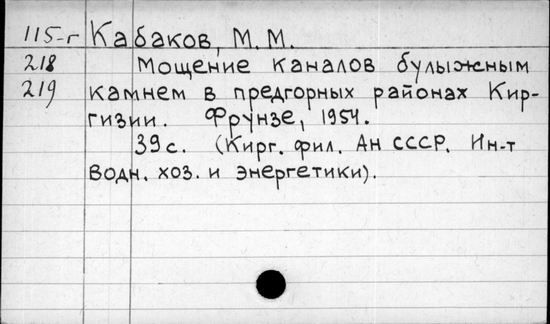 115-г Кабаков, М. М.
218 Мощение каналов булыжным
219 камнем в предгорных районах Кир-
гизии. Фрунзе, 1954.
39 с. (Кирг. фил. Ан СССР. Ин-т
водн. хоз. и энергетики).